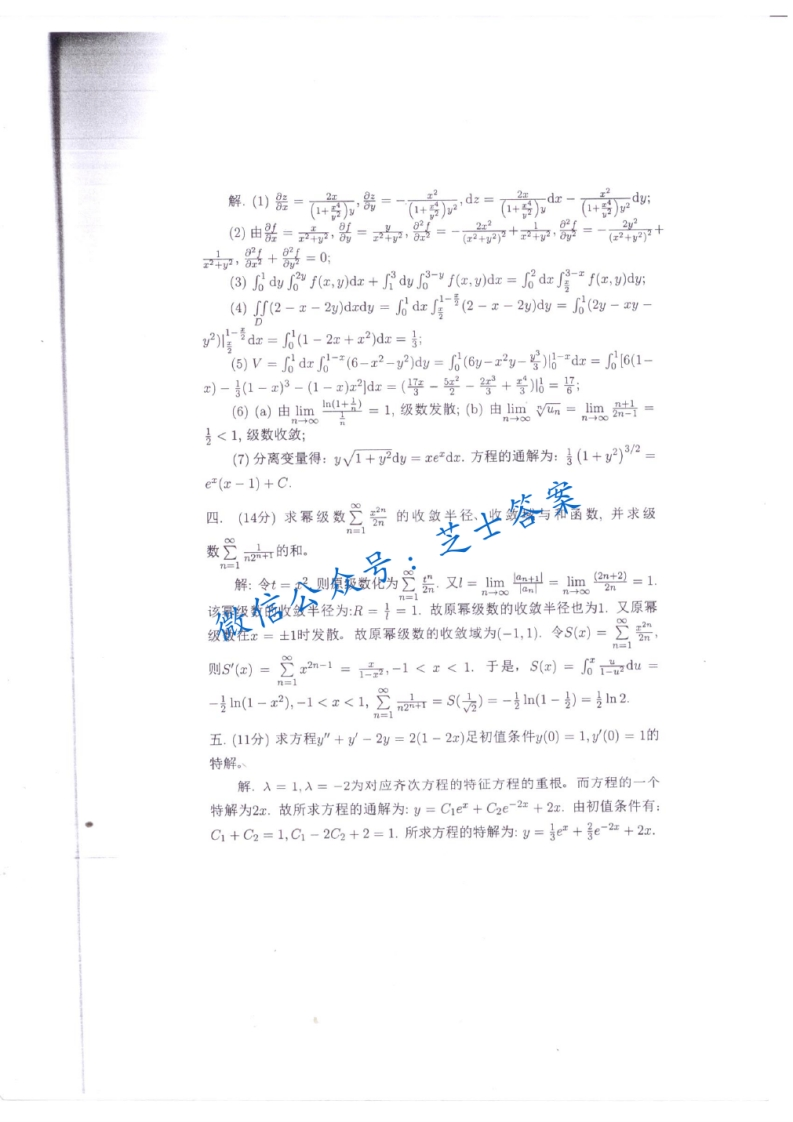 解. (1) ∂z/∂x = 2x/((1+x⁴/y²)y), ∂z/∂y = −x²/((1+x⁴/y²)y²), dz = 2x/((1+x⁴/y²)y)dx − x²/((1+x⁴/y²)y²)dy;
(2) 由∂f/∂x = x/(x²+y²), ∂f/∂y = y/(x²+y²), ∂²f/∂x² = −2x²/(x²+y²)² + 1/(x²+y²), ∂²f/∂y² = −2y²/(x²+y²)² +
1/(x²+y²), ∂²f/∂x² + ∂²f/∂y² = 0;
(3) ∫₀¹ dy ∫₀^{2y} f(x,y)dx + ∫₁³ dy ∫₀^{3−y} f(x,y)dx = ∫₀² dx ∫_{x/2}^{3−x} f(x,y)dy;
(4) ∬_D (2 − x − 2y)dxdy = ∫₀¹ dx ∫_{x/2}^{1−x/2} (2 − x − 2y)dy = ∫₀¹(2y − xy −
y²)|_{x/2}^{1−x/2} dx = ∫₀¹(1 − 2x + x²)dx = 1/3;
(5) V = ∫₀¹ dx ∫₀^{1−x}(6−x²−y²)dy = ∫₀¹(6y−x²y−y³/3)|₀^{1−x}dx = ∫₀¹[6(1−
x) − 1/3(1 − x)³ − (1 − x)x²]dx = (17x/3 − 5x²/2 − 2x³/3 + x⁴/3)|₀¹ = 17/6;
(6) (a) 由 lim_{n→∞} ln(1+1/n)/(1/n) = 1, 级数发散; (b) 由 lim_{n→∞} ⁿ√uₙ = lim_{n→∞} (n+1)/(2n−1) =
1/2 < 1, 级数收敛;
(7) 分离变量得: y√(1 + y²)dy = xeˣdx. 方程的通解为: 1/3 (1 + y²)^{3/2} =
eˣ(x − 1) + C.
四. (14分) 求幂级数 ∑_{n=1}^∞ x^{2n}/2n 的收敛半径、收敛域与和函数, 并求级
数 ∑_{n=1}^∞ 1/(n2^{n+1}) 的和。
解: 令t = x², 则原级数化为 ∑_{n=1}^∞ tⁿ/2n. 又l = lim_{n→∞} |a_{n+1}|/|aₙ| = lim_{n→∞} (2n+2)/2n = 1.
该幂级数的收敛半径为:R = 1/l = 1. 故原幂级数的收敛半径也为1. 又原幂
级数在x = ±1时发散。故原幂级数的收敛域为(−1, 1). 令S(x) = ∑_{n=1}^∞ x^{2n}/2n,
则S′(x) = ∑_{n=1}^∞ x^{2n−1} = x/(1−x²), −1 < x < 1. 于是, S(x) = ∫₀ˣ u/(1−u²)du =
−1/2 ln(1 − x²), −1 < x < 1, ∑_{n=1}^∞ 1/(n2^{n+1}) = S(1/√2) = −1/2 ln(1 − 1/2) = 1/2 ln 2.
五. (11分) 求方程y″ + y′ − 2y = 2(1 − 2x)足初值条件y(0) = 1, y′(0) = 1的
特解。
解. λ = 1, λ = −2为对应齐次方程的特征方程的重根。而方程的一个
特解为2x. 故所求方程的通解为: y = C₁eˣ + C₂e^{−2x} + 2x. 由初值条件有:
C₁ + C₂ = 1, C₁ − 2C₂ + 2 = 1. 所求方程的特解为: y = 1/3eˣ + 2/3e^{−2x} + 2x.
微信公众号：芝士答案